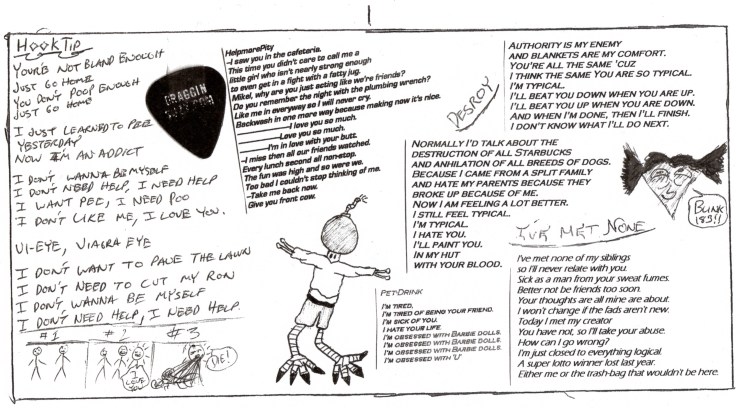 HOOKTIP
YOUR'E NOT BLAND ENOUGH
JUST GO HOME
YOU DON'T POOP ENOUGH
JUST GO HOME
I JUST LEARNED TO PEE
YESTERDAY
NOW I'M AN ADDICT
I DON'T WANNA BE MYSELF
I DON'T NEED HELP, I NEED HELP
I WANT PEE, I NEED POO
I DON'T LIKE ME, I LOVE YOU.
VI-EYE, VIAGRA EYE
I DON'T WANT TO PAVE THE LAWN
I DON'T NEED TO CUT MY RON
I DON'T WANNA BE MYSELF
I DON'T NEED HELP, I NEED HELP.
#1 #2 #3
I LOVE YOU
DIE!
HelpmarePity
-I saw you in the cafeteria.
This time you didn't care to call me a
little girl who isn't nearly strong enough
to even get in a fight with a fatty jug.
Mikel, why are you just acting like we're friends?
Do you remember the night with the plumbing wrench?
Like me in everyway so I will never cry.
Backwash in one more way because making now it's nice.
I love you so much.
Love you so much.
I'm in love with your butt.
-I miss then all our friends watched.
Every lunch second all non-stop.
The fun was high and so were we.
Too bad I couldn't stop thinking of me.
-Take me back now.
Give you front cow.
PET-DRINK
I'M TIRED.
I'M TIRED OF BEING YOUR FRIEND.
I'M SICK OF YOU.
I HATE YOUR LIFE
I'M OBSESSED WITH BARBIE DOLLS.
I'M OBSESSED WITH BARBIE DOLLS.
I'M OBSESSED WITH BARBIE DOLLS.
I'M OBSESSED WITH 'U'
DESROY
AUTHORITY IS MY ENEMY
AND BLANKETS ARE MY COMFORT.
YOU'RE ALL THE SAME 'CUZ
I THINK THE SAME YOU ARE SO TYPICAL.
I'M TYPICAL.
I'LL BEAT YOU DOWN WHEN YOU ARE UP.
I'LL BEAT YOU UP WHEN YOU ARE DOWN.
AND WHEN I'M DONE, THEN I'LL FINISH.
I DON'T KNOW WHAT I'LL DO NEXT.
NORMALLY I'D TALK ABOUT THE
DESTRUCTION OF ALL STARBUCKS
AND ANHILATION OF ALL BREEDS OF DOGS.
BECAUSE I CAME FROM A SPLIT FAMILY
AND HATE MY PARENTS BECAUSE THEY
BROKE UP BECAUSE OF ME.
NOW I AM FEELING A LOT BETTER.
I STILL FEEL TYPICAL.
I'M TYPICAL.
I HATE YOU.
I'LL PAINT YOU.
IN MY HUT
WITH YOUR BLOOD.
BLINK
183!!
I'VE MET NONE
I've met none of my siblings
so I'll never relate with you.
Sick as a man from your sweat fumes.
Better not be friends too soon.
Your thoughts are all mine are about.
I won't change if the fads aren't new.
Today I met my creator
You have not, so I'll take your abuse.
How can I go wrong?
I'm just closed to everything logical.
A super lotto winner lost last year.
Either me or the trash-bag that wouldn't be here.